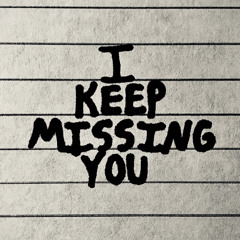 I
KEEP
MISSING
YOU